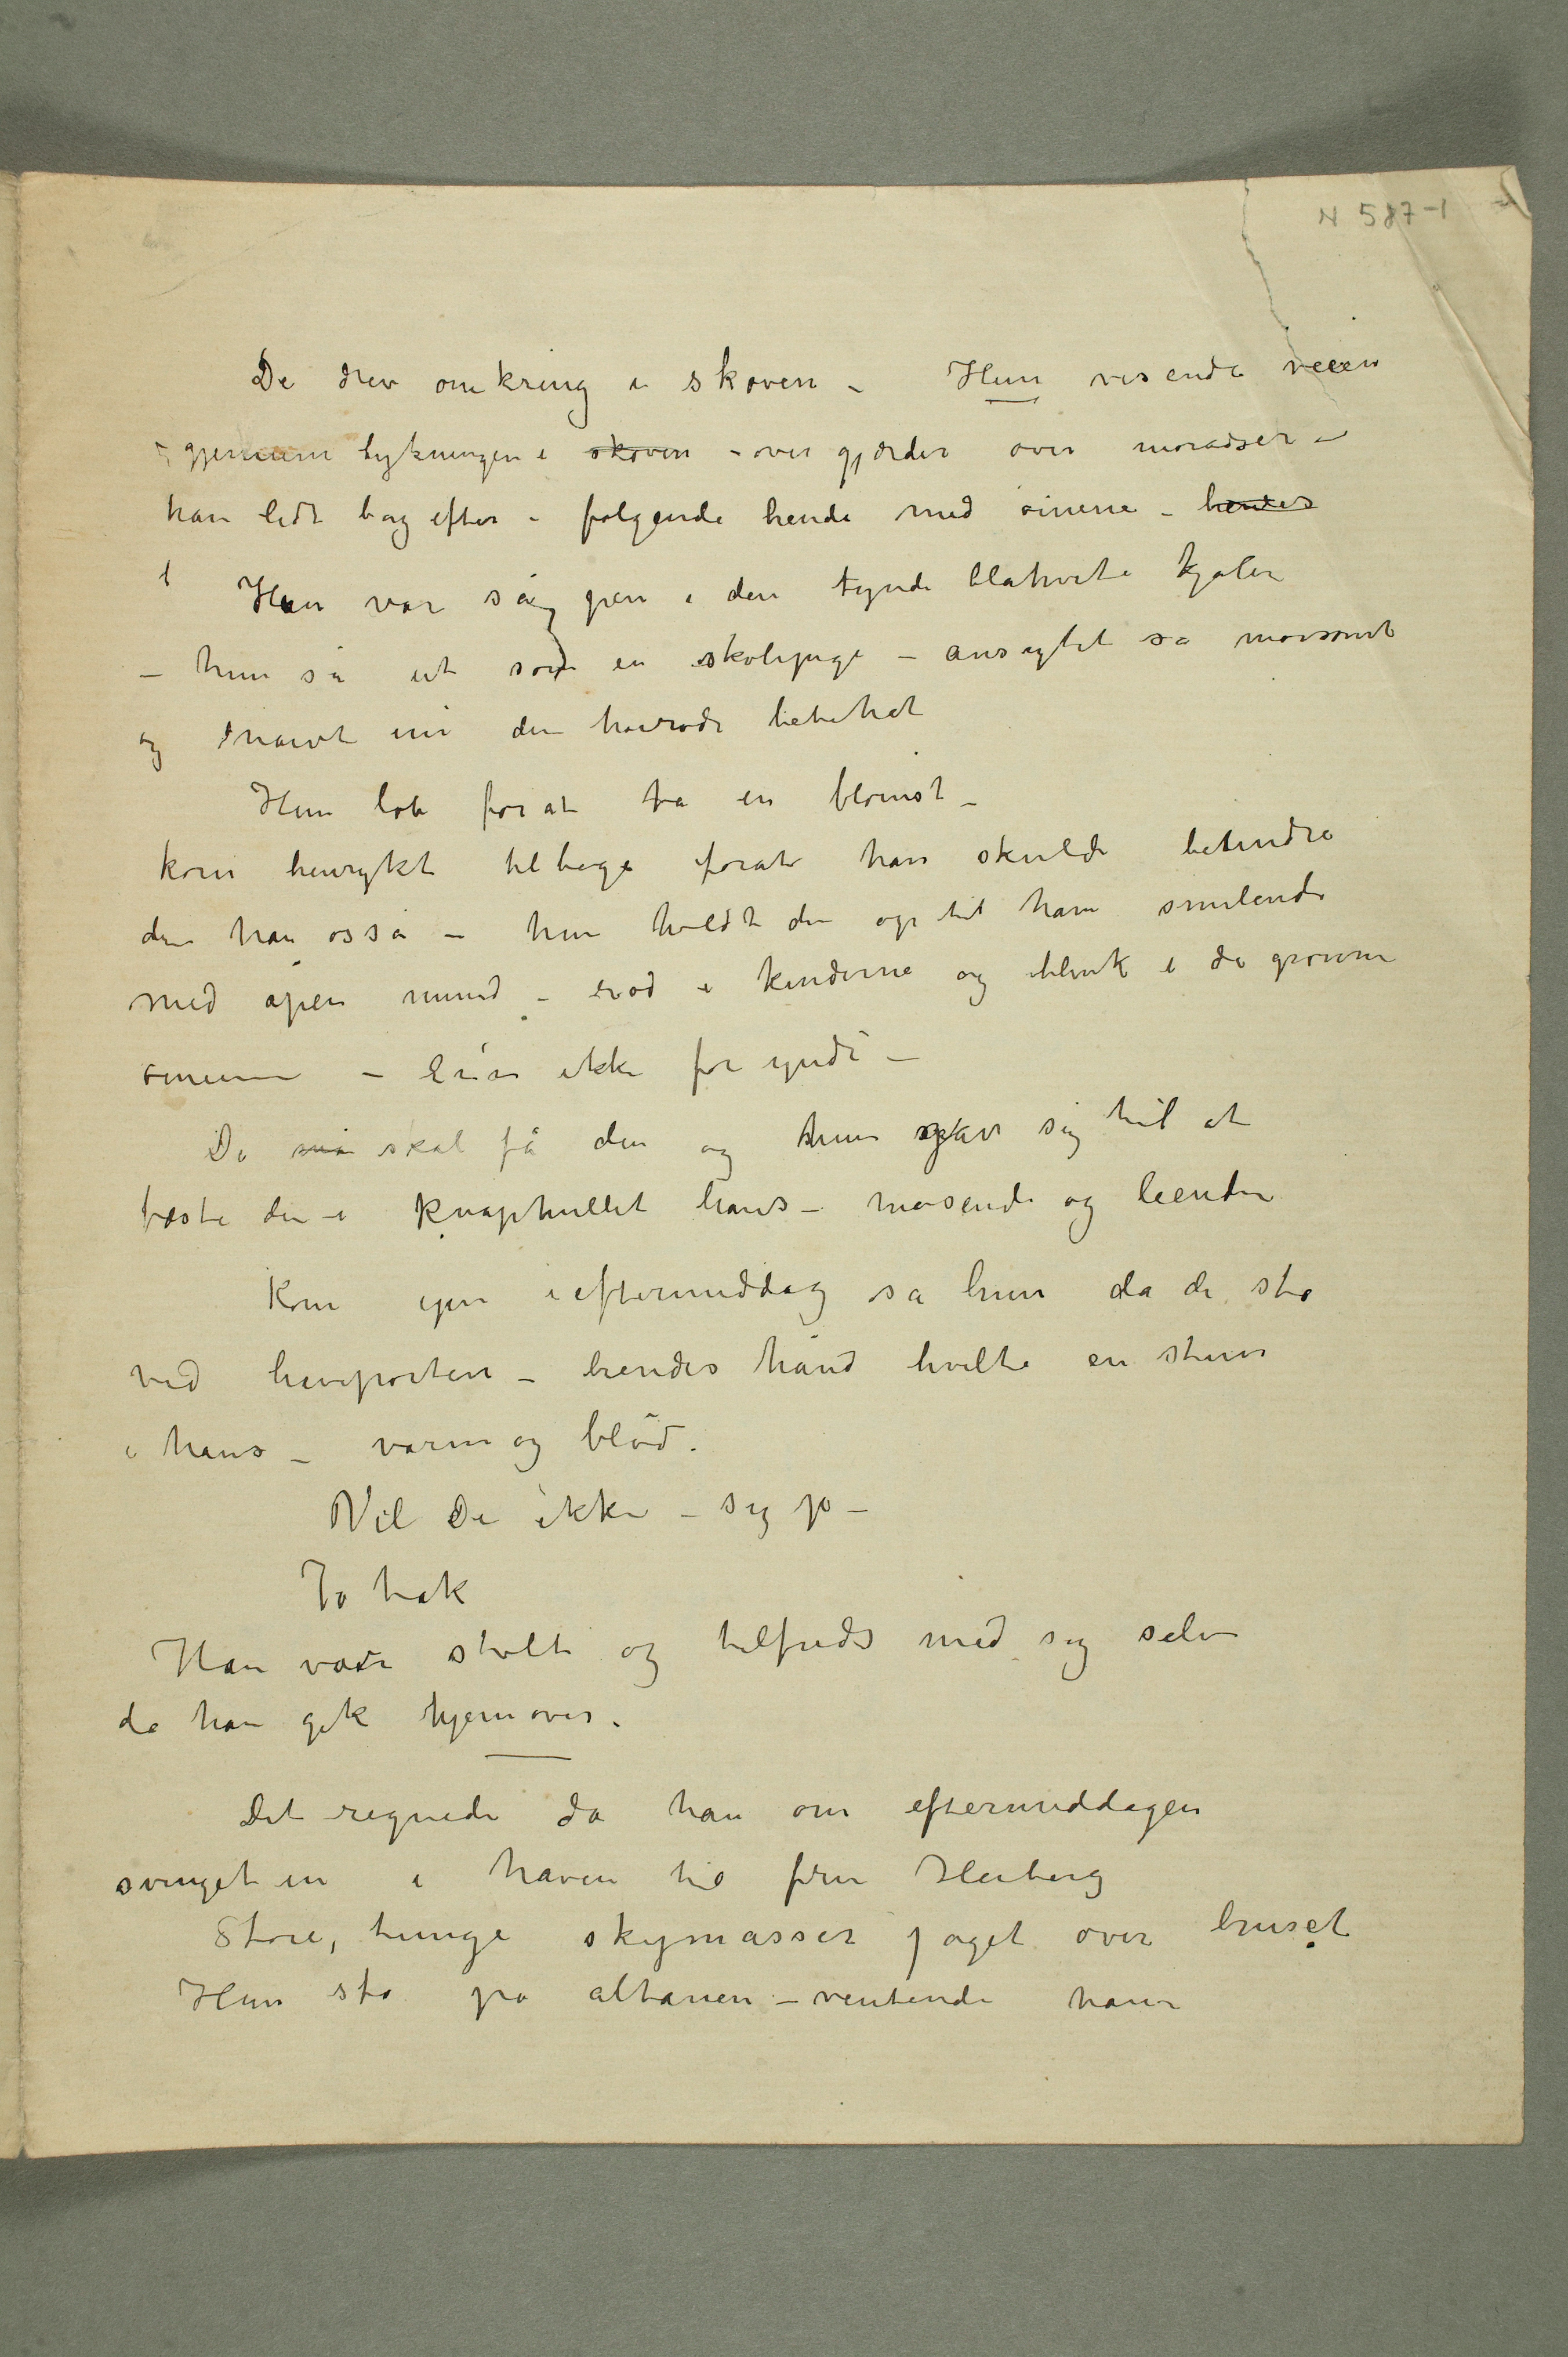 N 587-1
De drev omkring i skoven – Hun visende veien
gjennem tykningen i skoven – over gjærder over moradser –
han lidt bag efter – følgende hende med øinene – hendes
Hun var så pen i den tynde blåhvite kjolen
– hun så ut som en skolepige – ansigtet så morsomt
og naivt i den høirøde bebehat
Hun løb for at ta en blomst –
kom henrykt tilbage forat han skulde beundre
den han også – hun holdt den op til ham smilende
med åpen mund – rød i kinderne og blank i de grønne
øinene – Er'an ikke for yndi –
De må skal få den og hun gav sig til at
fæste den i knaphullet hans – masende og leende
Kom igen i eftermiddag sa hun da de sto
ved haveporten – hendes hånd hvilte en stun
i hans – varm og blød.
Vil De ikke – sig jo –
Jo tak
Han var stolt og tilfreds med sig selv
da han gik hjemover.
Det regnede da han om eftermiddagen
svinget in i haven til fru Heiberg
Store, tunge skymasser jaget over huset
Hun sto på altanen – ventende ham